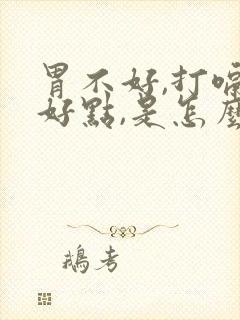 胃不好,打嗝
好點,是怎麼
鵝考